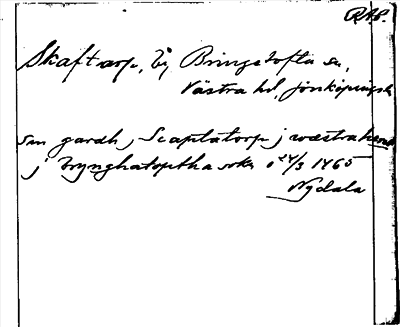 RAP.
Skaftarp, by, Bringetofta sn,
Västra hd, Jönköpings l.
sin gardh j Scaptatorp j wæstrahærat
j Brynghatoptha sokn 24/3 1465
Nydala